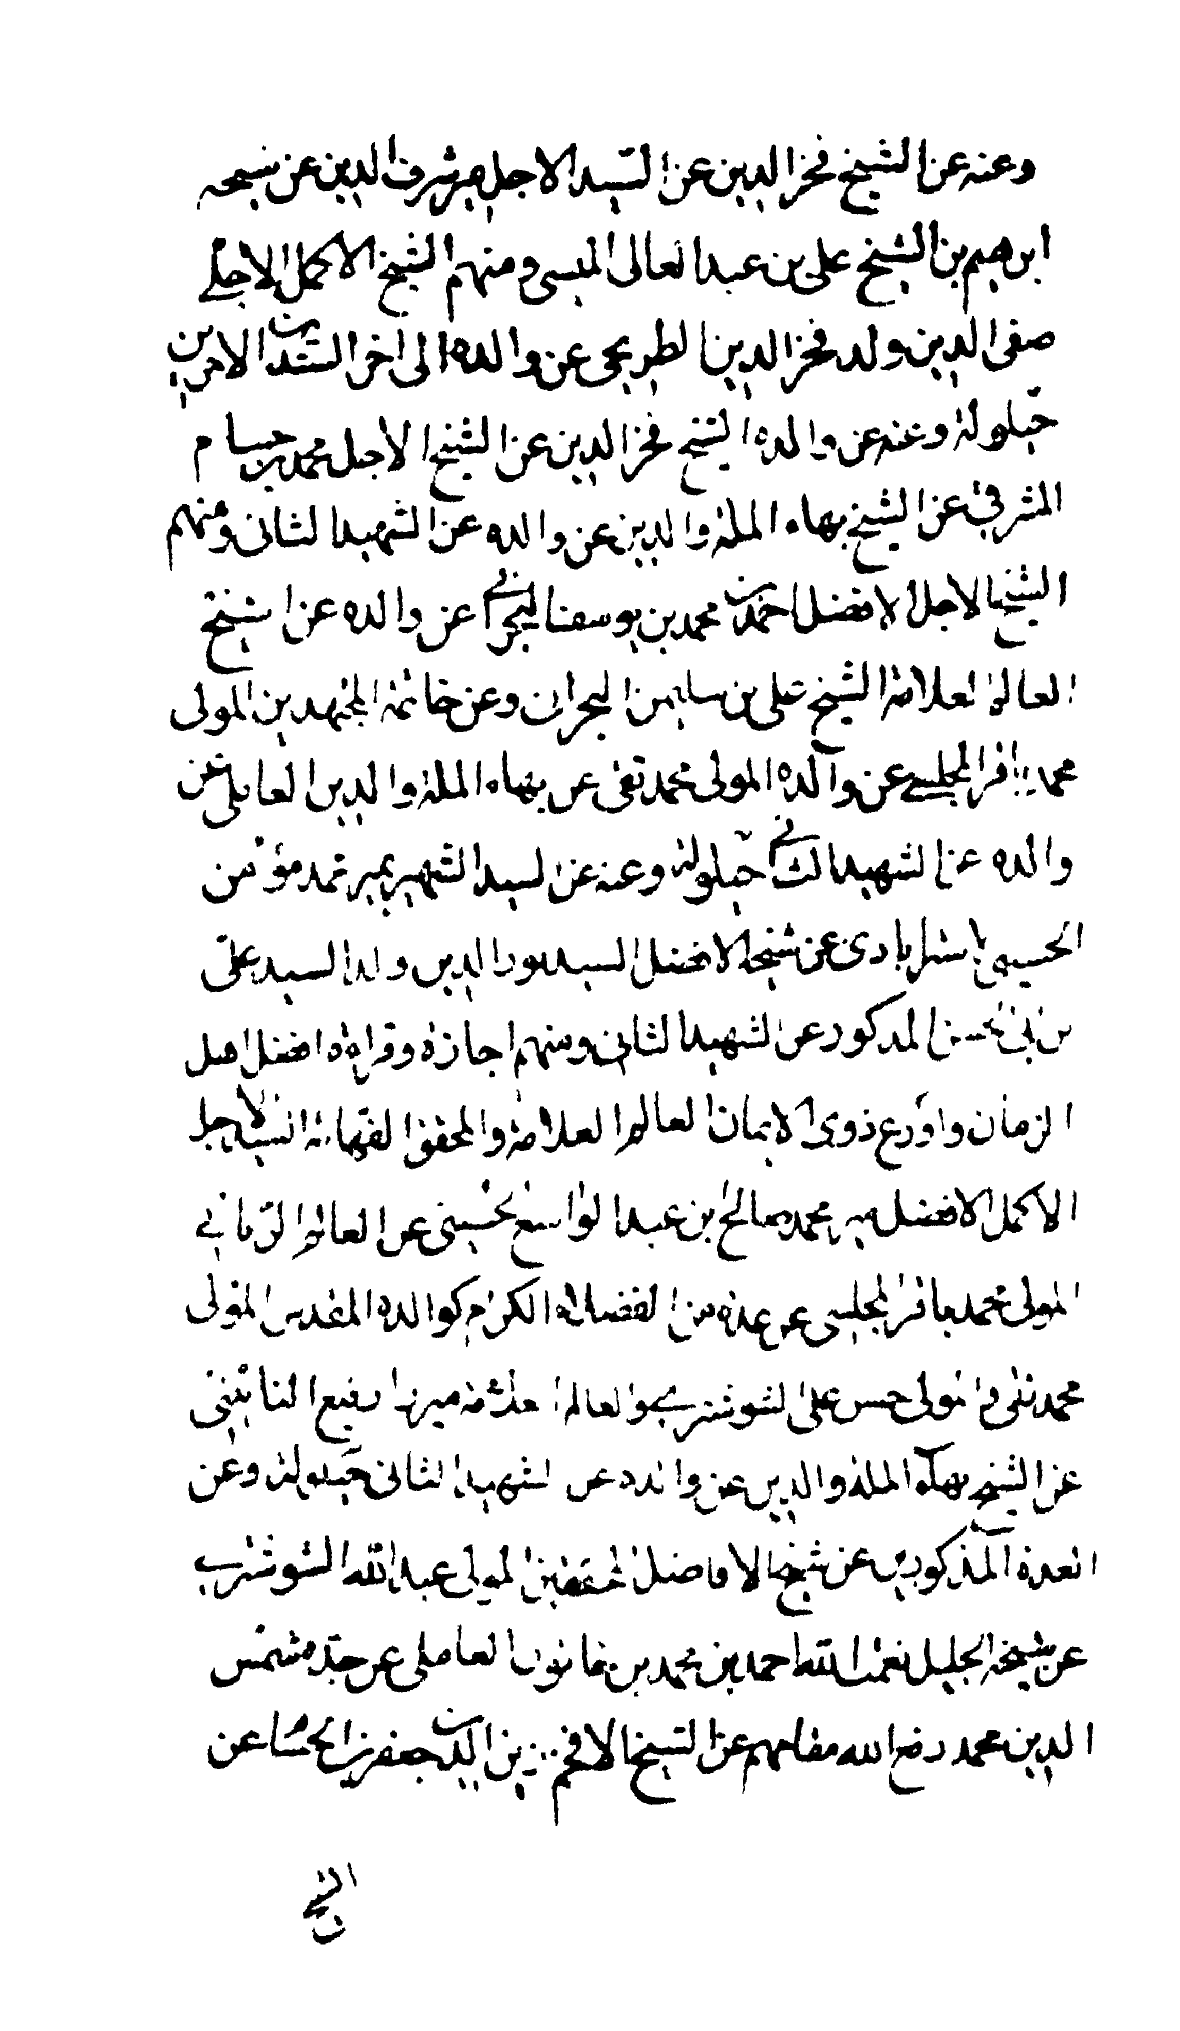 وعنه عن الشيخ فخر الدين عن السيد الاجل مير شرف الدين عن شيخه
ابرهيم بن الشيخ علي بن عبد العالى الميسى ومنهم الشيخ الاكمل الاجل
صفى الدين ولد فخر الدين الطريحى عن والده الى اخر السند الامرين
حيلولة وعنه عن والده الشيخ فخر الدين عن الشيخ الاجل محمد بن حسام
المشرقي عن الشيخ بهاء الملة والدين عن والده عن الشهيد الثانى ومنهم
الشيخ الاجل الافضل احمد بن محمد بن يوسف البحراني عن والده عن الشيخ
العالم العلامة الشيخ على بن سليمن البحرانى وعن خاتمة المجتهدين المولى
محمد باقر المجلسي عن والده المولى محمد تقى عن بهاء الملة والدين العاملى عن
والده عن الشهيد الثاني حيلولة وعنه عن السيد الشهير بمير محمد مؤمن
الحسينى الاسترابادى عن شيخه الافضل السيد نور الدين ولد السيد على
بن ابى الحسن المذكور عن الشهيد الثانى ومنهم اجازة وقراءة افضل اهل
الزمان واورع ذوى الايمان العالم العلامة والمحقق الفهامة السيد الاجل
الاكمل الافضل مير محمد صالح بن عبد الواسع الحسينى عن العالم الربانى
المولى محمد باقر المجلسى عن عدة من الفضلاء الكرام كوالده المقدس المولى
محمد تقى والمولى حسن على الشوشترى والعالم العلامة ميرزا رفيع النائينى
عن الشيخ بهاء الملة والدين عن والده عن الشهيد الثانى حيلولة وعن
العدة المذكورين عن شيخ الافاضل المحققين المولى عبد الله الشوشترى
عن شيخه الجليل نعمت الله احمد بن محمد بن خاتون العاملى عن جده شمس
الدين محمد رفع الله مقامهم عن الشيخ الافخم زين الدين جعفر بن الحسام عن
الشيخ